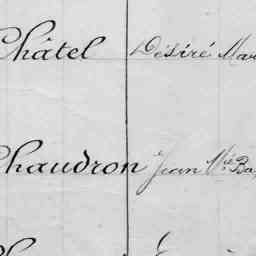 Châtel Désiré Mar
Chaudron Jean Mie Ba